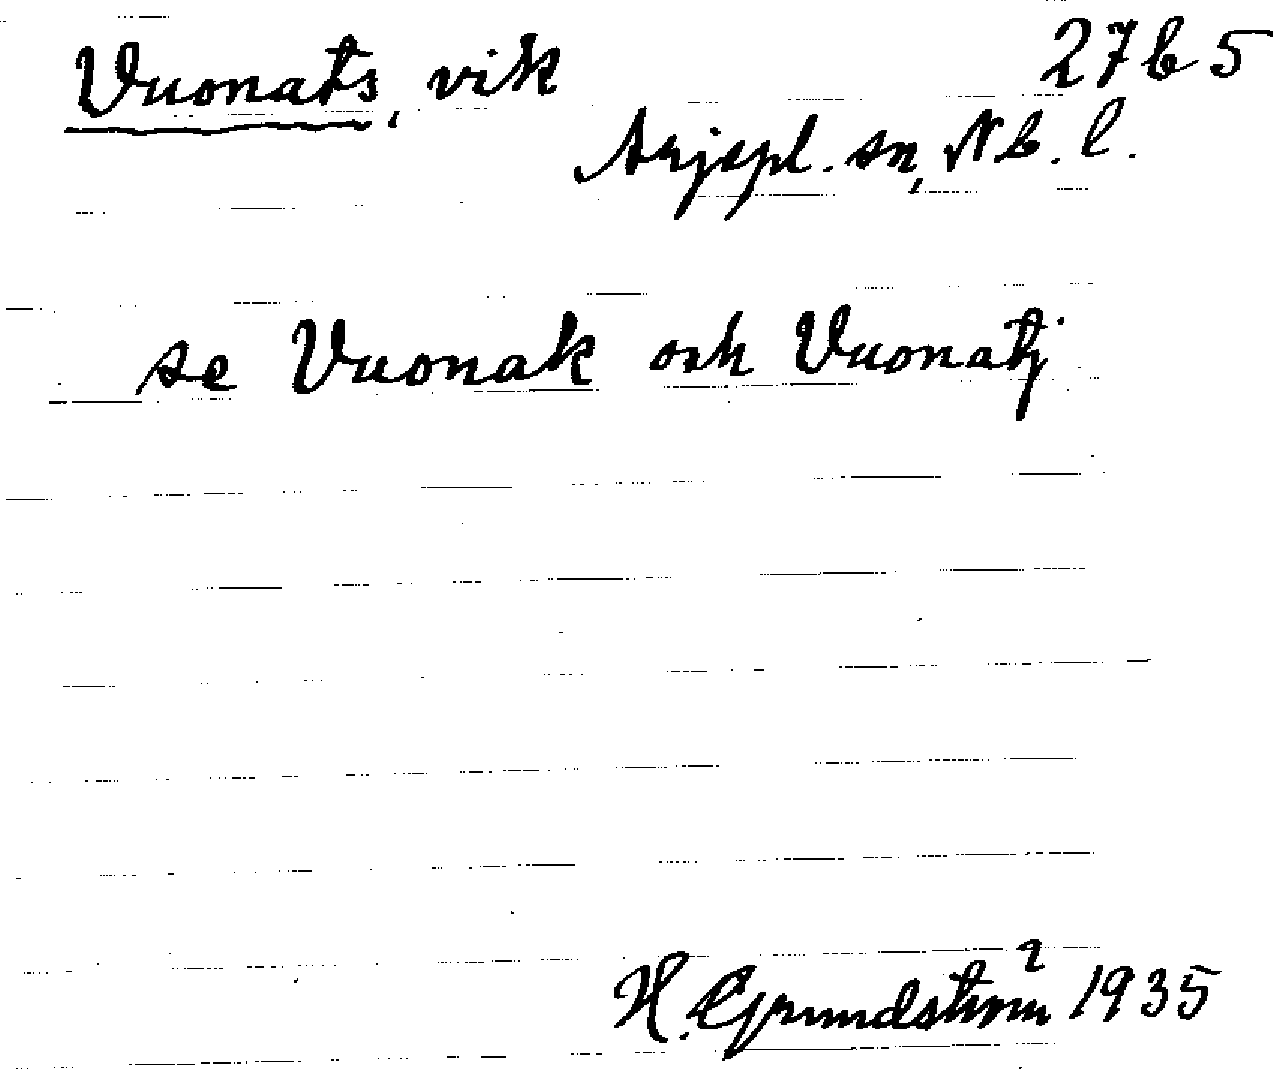 Vuonats, vik 27b5
Arjepl. sn, Nb. l.
se Vuonak och Vuonatj
H. Grundström 1935